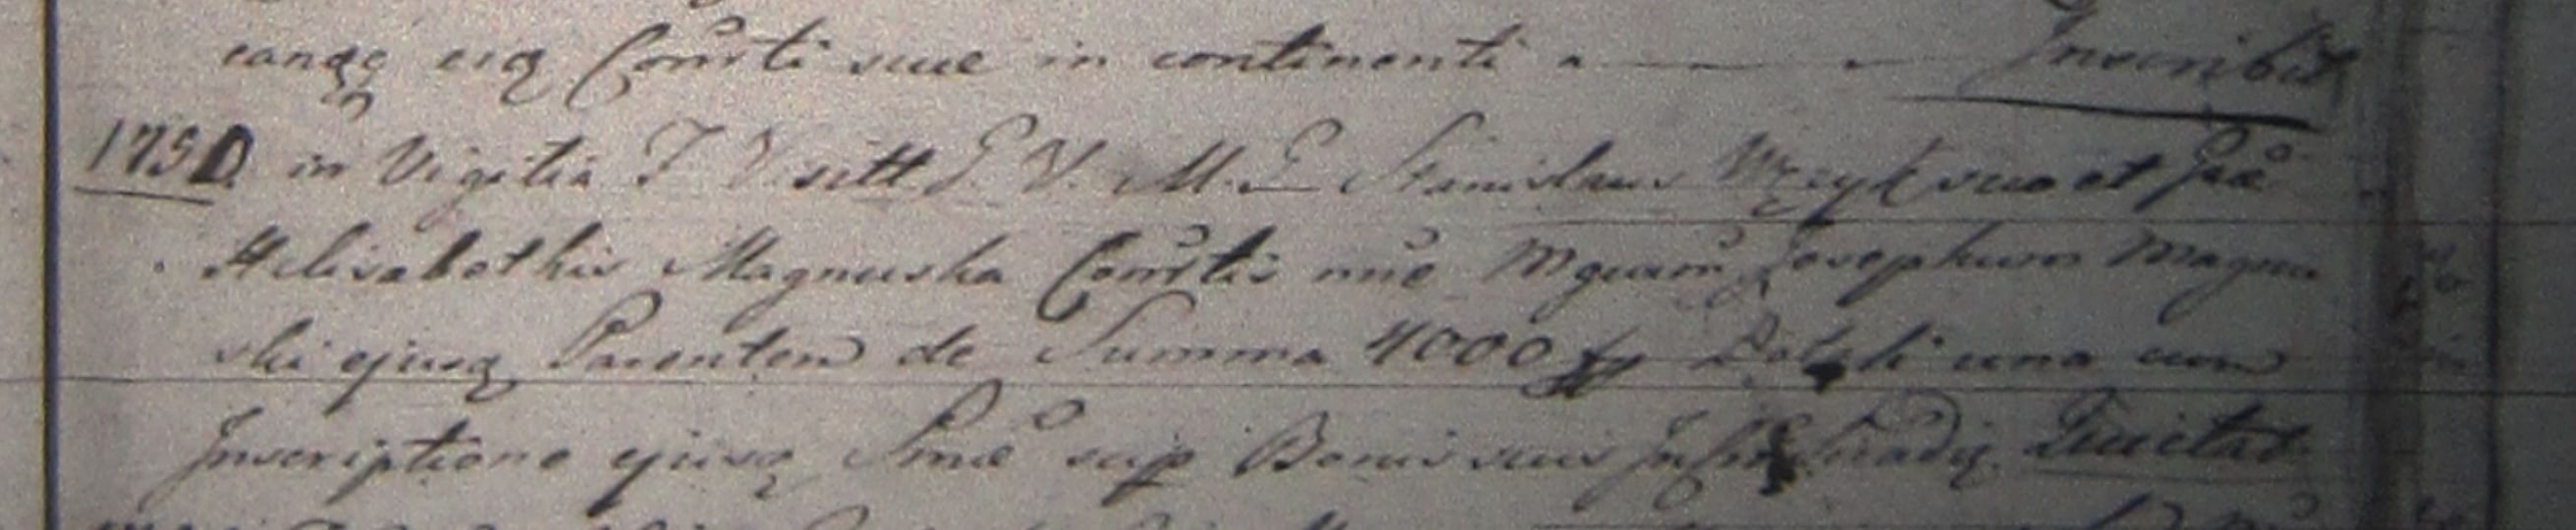 eangꝗ eiꝗ Consti suae in continenti Inscribit
1750 in Vigilia F Visitt B. V. M. G Stanislaus Wezyk suo et
Helisabethis Magnuska Constis nõie Mgcum Josephum Magnu
ski ejusꝗ Parentem de Summa 4000 Dotali una cum
Inscriptione ejusꝗ Smae sup Bonis suis Quietat